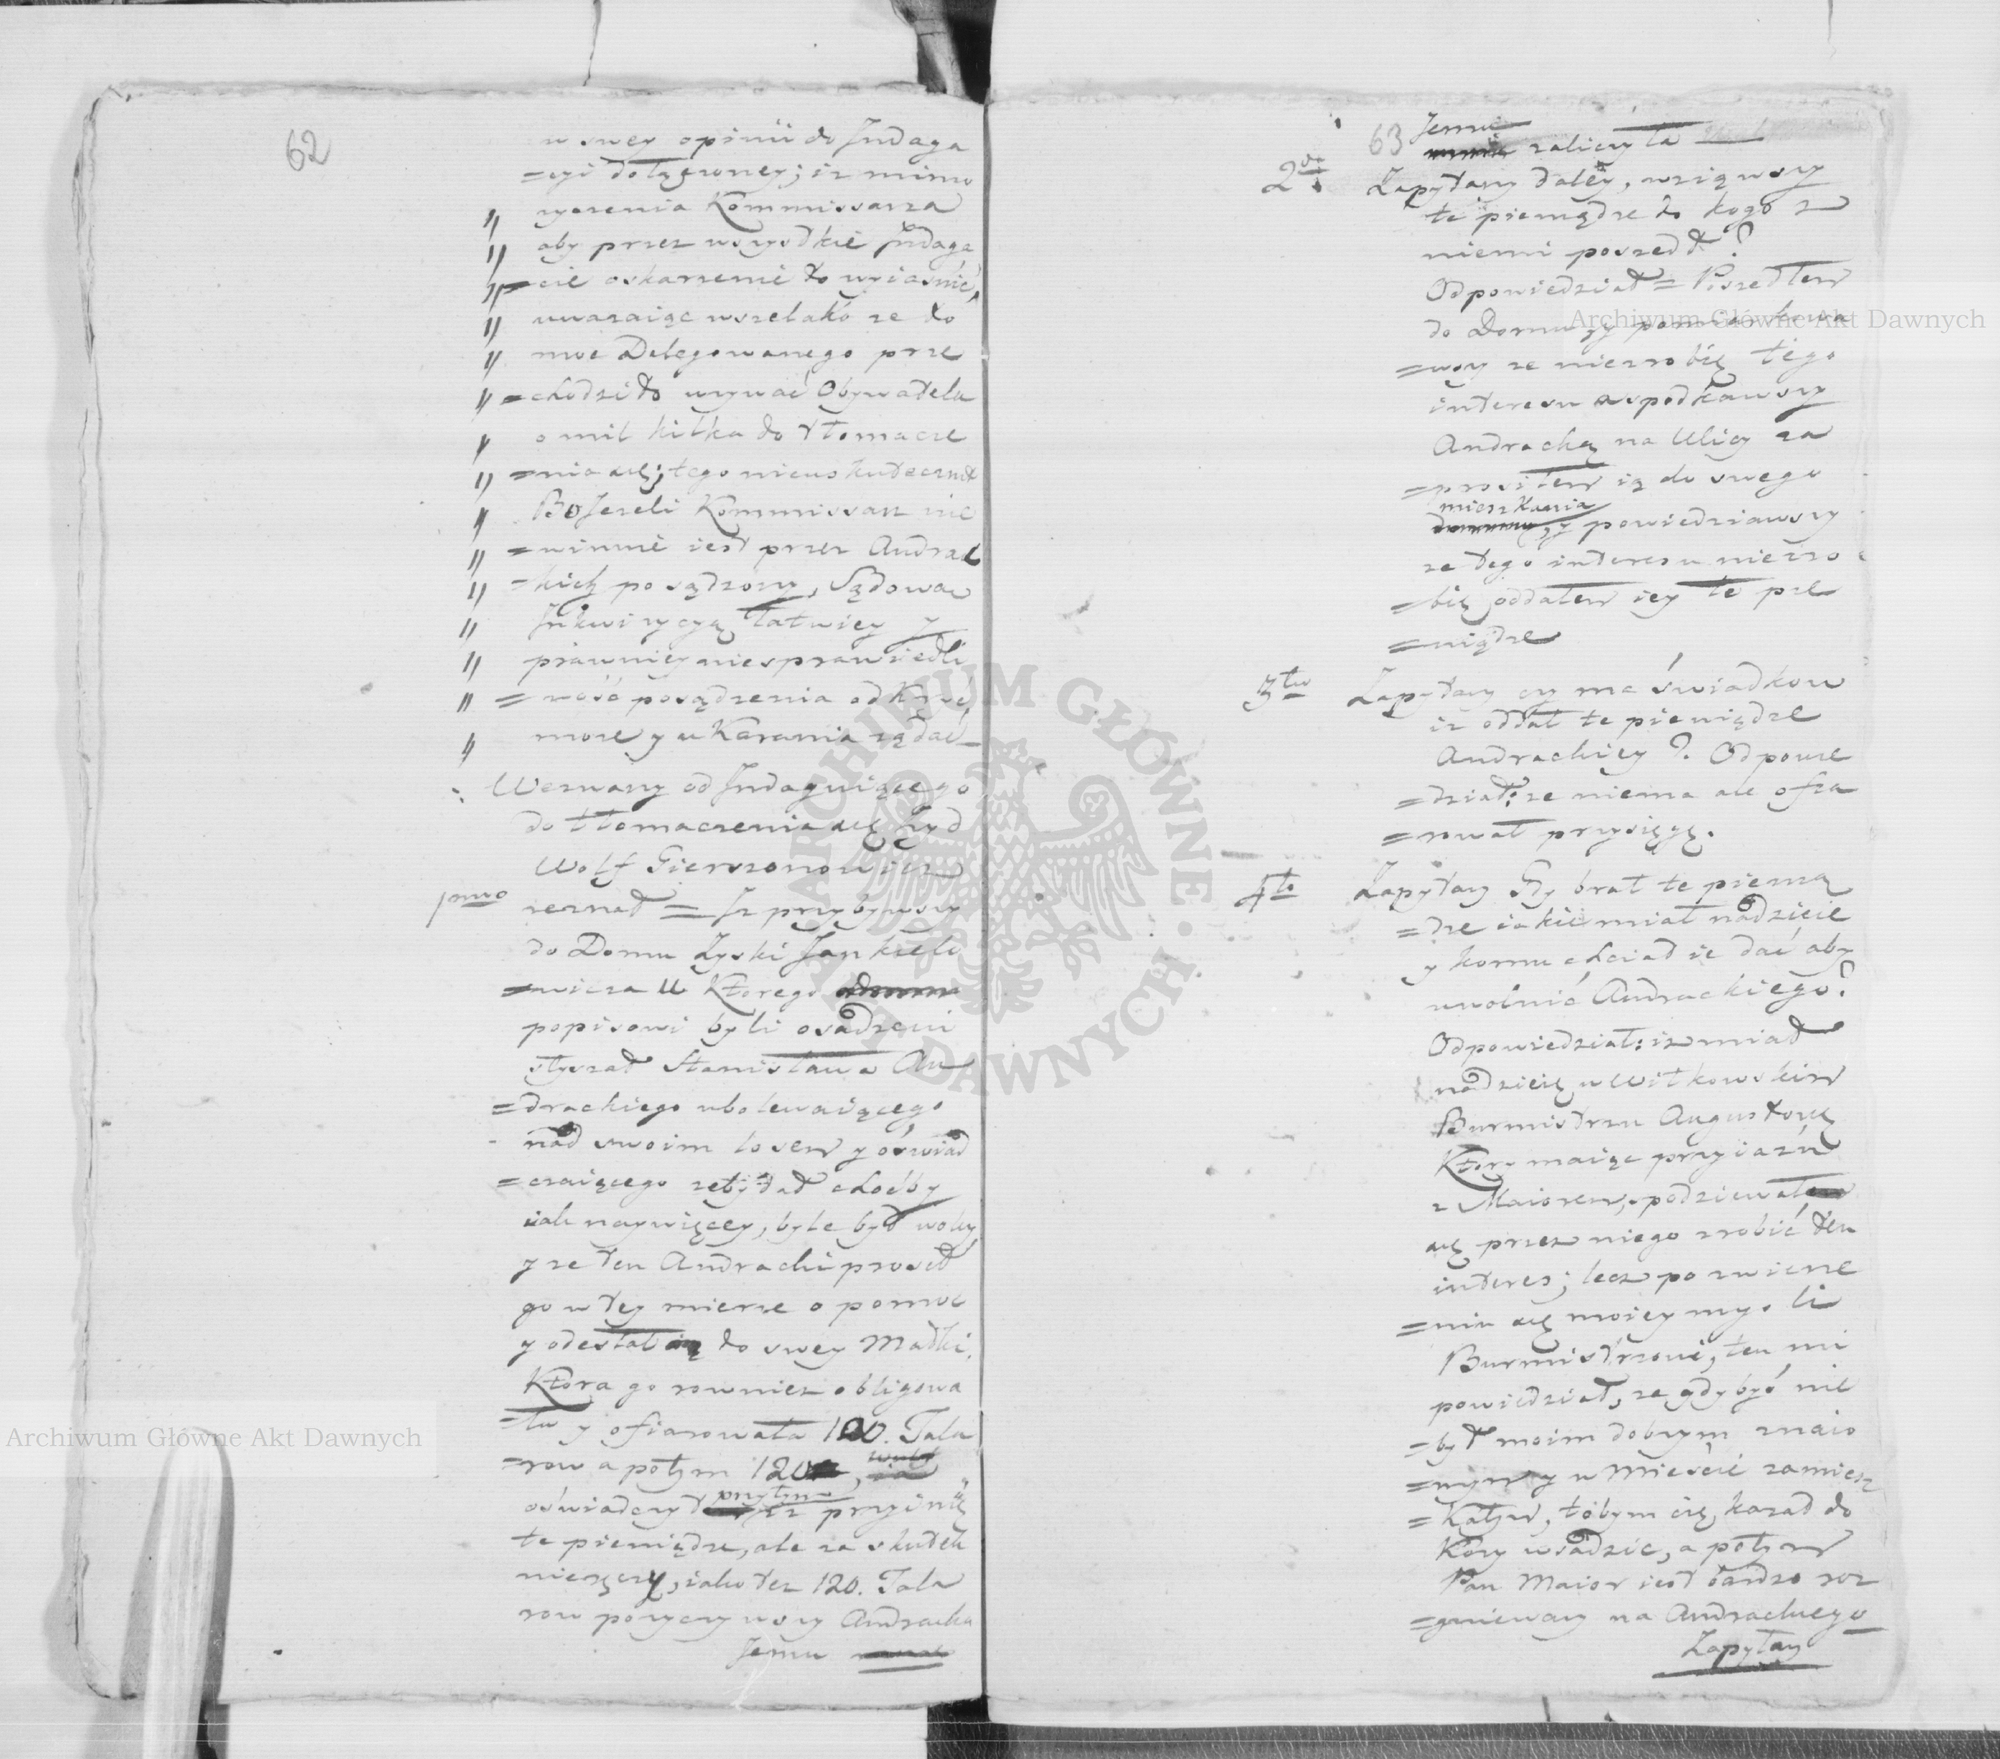 62
w swey opinii do Indaga
=cyi dołączoney; iż mimo
życzenia Kommissarza
aby przez wszystkie Indaga
=cie oskarżenie to wyiaśnić,
uważaiąc wszelako że to
moc Delegowanego prze
=chodziło wzywać Obywatela
o mil kilka do tłomacze
=nia się; tego nieuskutecznił
Bo Jeżeli Kommissarz nie
=winnie iest przez Andrac
=kich posądzony, Sądowa
Inkwizycyą łatwiey y
prawniey niesprawiedli
=wość posądzenia odkryć
może y u Karania żądać
Wezwany od Indaguiącego
do tłomaczenia się Żyd
Wolf Gierszonowicz
1mo zeznał = Iż przybywszy
do Domu Łyski Jankielo
=wicza u Ktorego
popisowi byli osadzeni
słyszał Stanisława An
=drackiego ubolewaiącego
nad swoim losem y oświad
=czaiącego żeby dał choćby
iak naywięcey, byle był wolny
y że ten Andracki prosił
go w tey mierze o pomoc
y odesłał do swey Matki,
Ktora go rownież obligowa
=ła y ofiarowała 100. Tala
=row a potym 120,
oświadczył przytym iż przyimię
te pieniądze, ale za skutek
nieręczy, iakoż też 120. Tala
row pożyczywszy Andracka
Jemu
63 Jemu
zaliczyła
2do Zapytany daley, wziąwszy
te pieniądze do kogo z
niemi poszedł?
Odpowiedział = Poszedłem
do Domu y pomiarkowa
=wszy że niezrobię tego
interesu a spodkawszy
Andracką na Ulicy za
=prosiłem ią do swego
mieszkania
y powiedziawszy
że tego interesu niezro
=bię oddałem iey te pie
=niądze
3tio Zapytany czy ma świadkow
iż oddał te pieniądze
Andrackiey? Odpowie
=dział: że niema ale ofia
=rował przysięgę.
4to Zapytany Gdy brał te pienią
=dze iakie miał nadzieie
y komu chciał ie dać aby
uwolnić Andrackiego?
Odpowiedział: iż miał
nadzieię w Witkowskim
Burmistrzu Augustowa
Ktory maiąc przyiaźń
z Maiorem, spodziewałem
się przez niego zrobić ten
interes; lecz po zwierze
=niu się moiey myśli
Burmistrzowi, ten mi
powiedział, że gdybyś nie
=był moim dobrym znaio
=mym y w Mieście zamiesz
=kałym, tobym cię kazał do
Kozy wsadzić, a potym
Pan Maior iest bardzo roz
=gniewany na Andrackiego
Zapytany
Archiwum Główne Akt Dawnych
Archiwum Główne Akt Dawnych
ARCHIWUM GŁÓWNE · AKT DAWNYCH ·